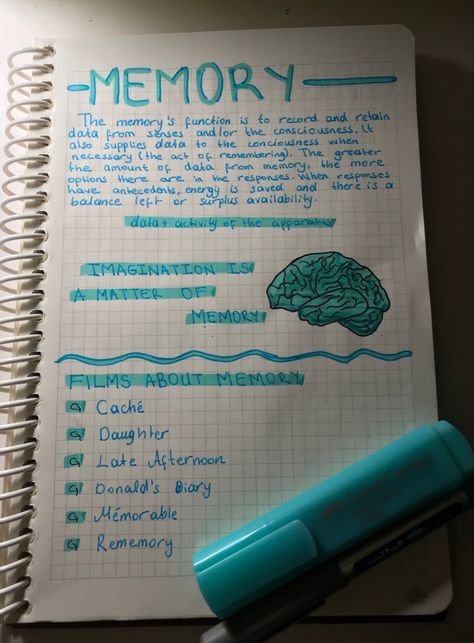 MEMORY
The memory's function is to record and retain
data from senses and/or the consciousness. It
also supplies data to the conciousness when
necessary (the act of remembering). The greater
the amount of data from memory, the more
options there are in the responses. When responses
have antecedents, energy is saved and there is a
balance left or surplus availability.
data + activity of the apparatus
IMAGINATION IS
A MATTER OF
MEMORY
FILMS ABOUT MEMORY
Caché
Daughter
Late Afternoon
Donald's Diary
Mémorable
Rememory